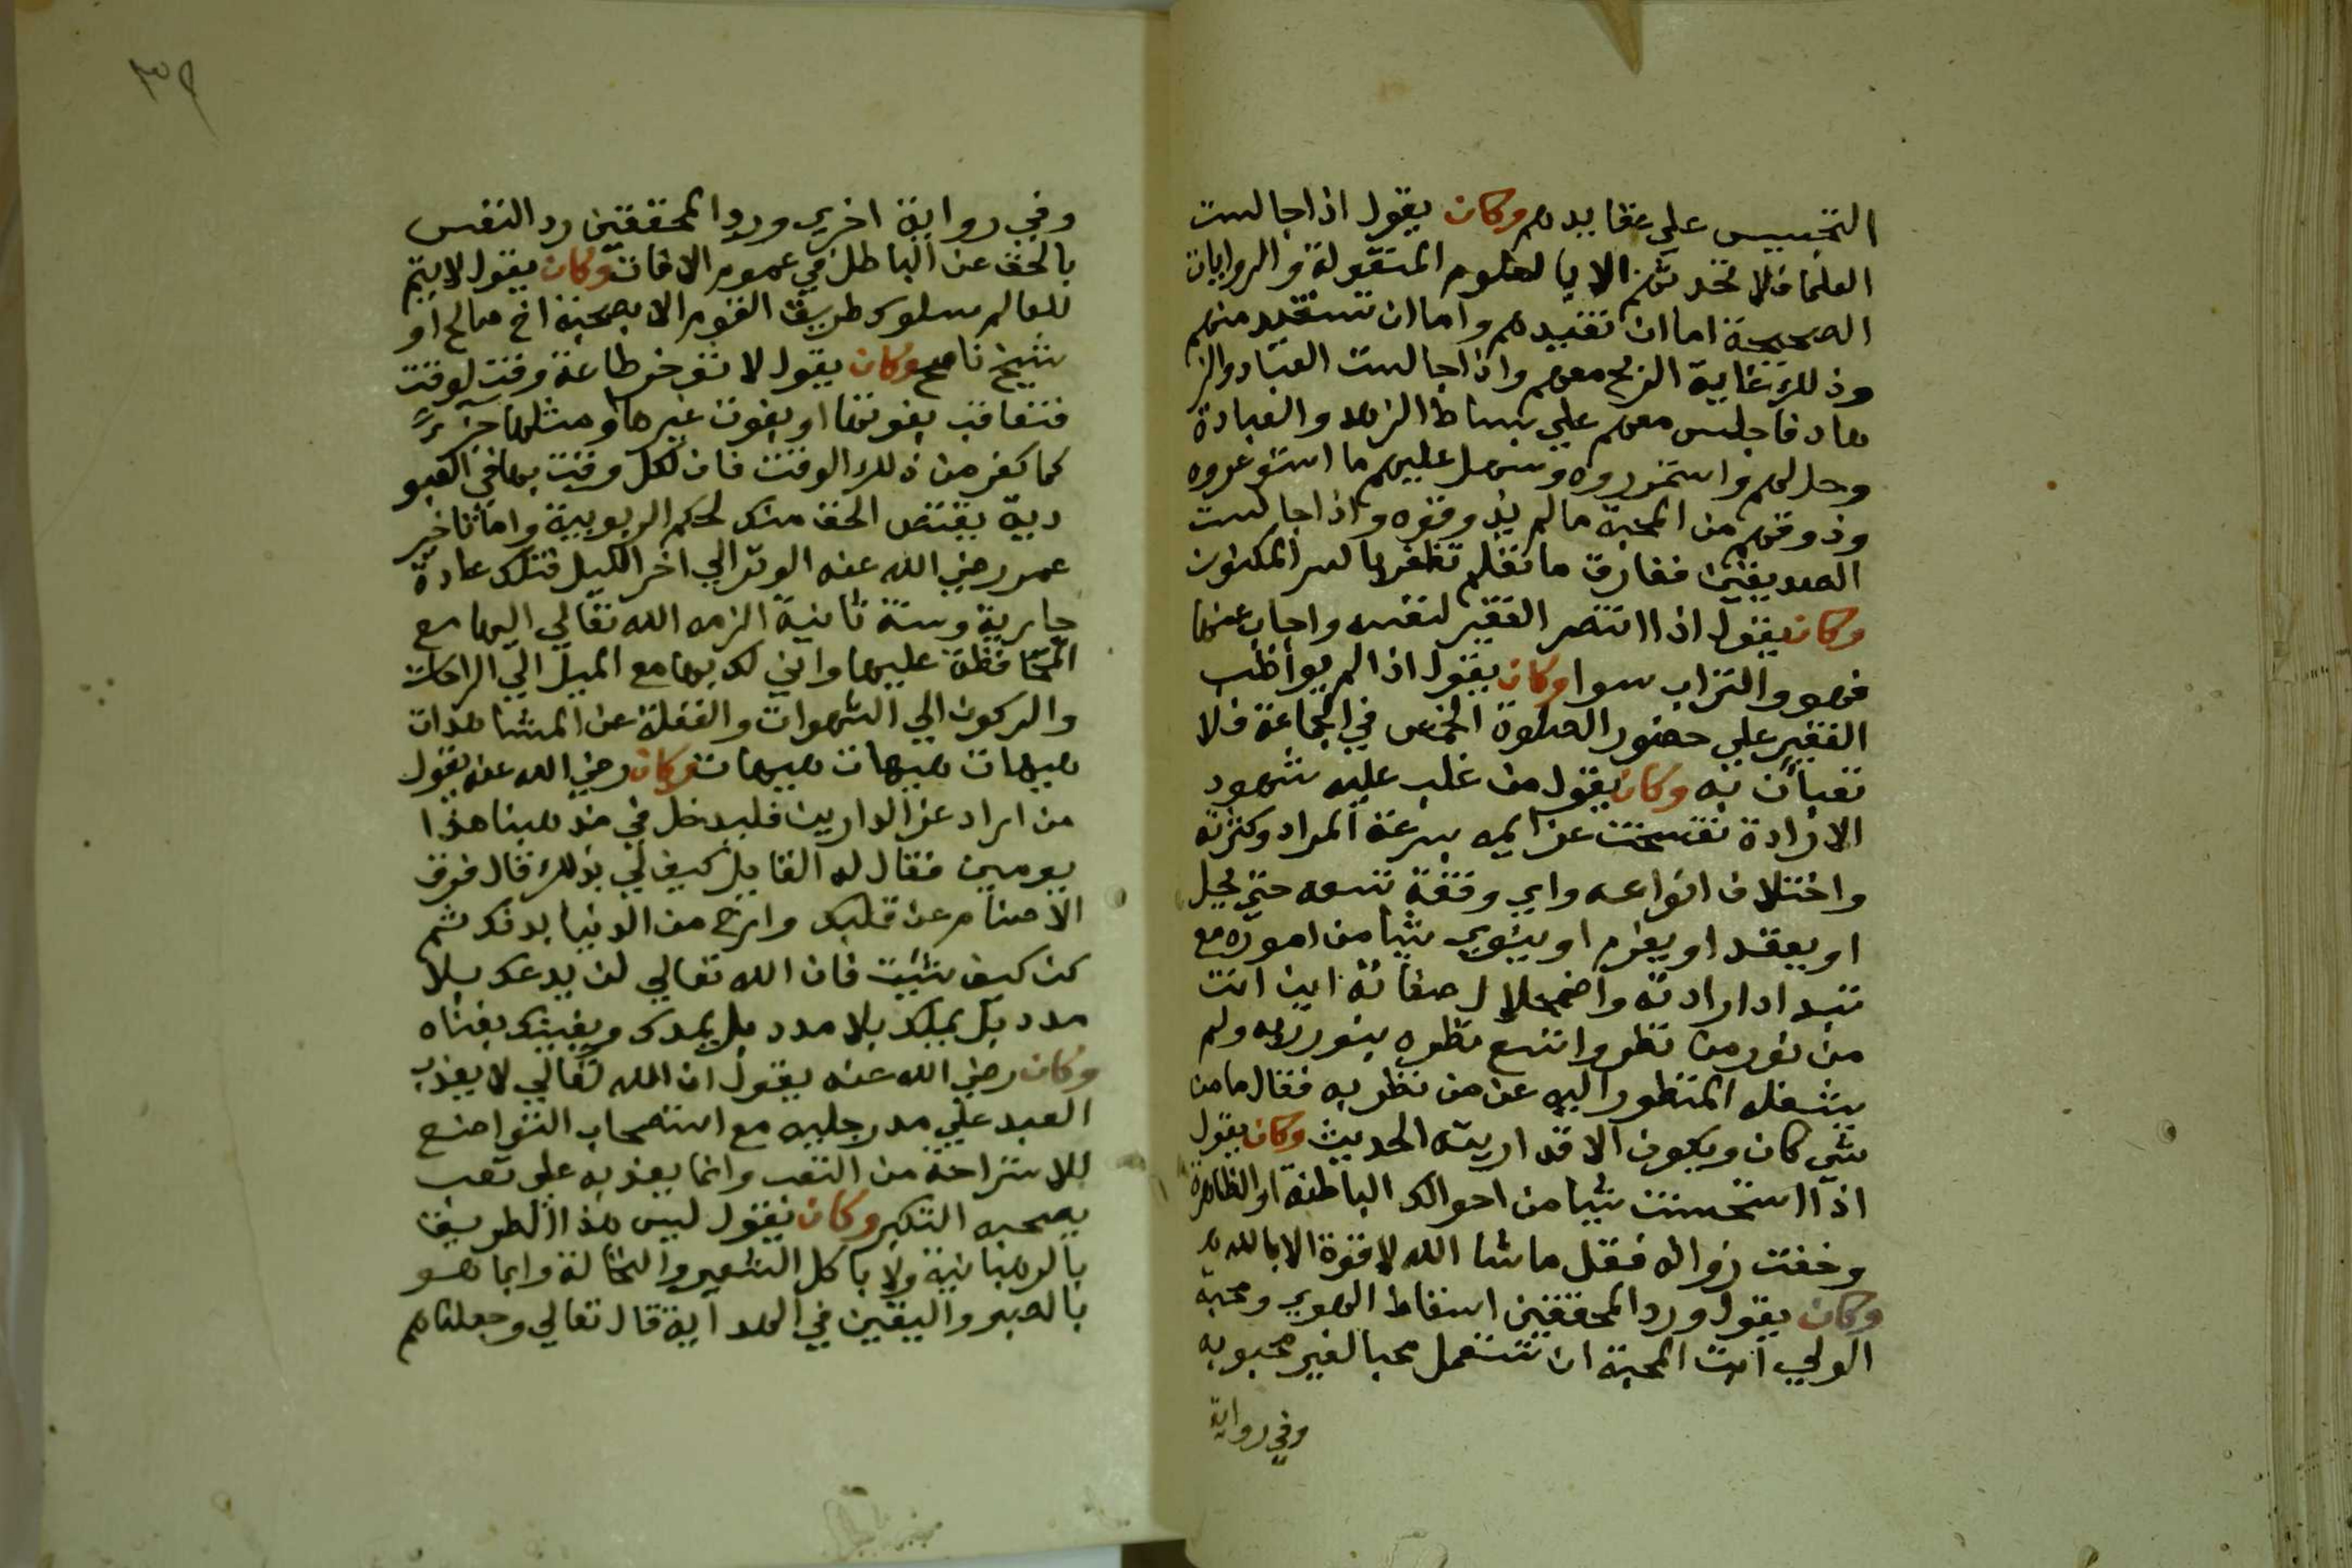 التجسيس علي عقايدهم وكان يقول اذا جالست
العلما فلا تحدثهم الا بالعلوم المنقولة والروايات
الصحيحة اما ان تفيدهم واما ان تستفيد منهم
وذلك غاية الربح معهم واذا جالست العباد والز
هاد فاجلس معهم علي بساط الزهد والعبادة
وحل لهم واستمزروه وسهل عليهم ما استوعروه
وذوقهم من المحبة ما لم يذوقوه واذا جالست
الصديقين ففارق ما تعلم تظفر بالسر المكنون
وكان يقول اذا انتصر الفقير لنفسه واجاب عنها
فهو والتراب سوا وكان يقول اذا لم يواظب
الفقير علي حضور الصلوة الخمس في الجماعة فلا
تعبأن به وكان يقول من غلب عليه شهود
الارادة تفسخت عزايمه بسرعة المراد وكثرته
واختلاف انواعه واي وقفة تسعه حتي يحل
او يعقد او يعزم او ينوي شيا من اموره مع
تبداد ارادته واضمحلال صفاته اين انت
من نور من نظر واتسع نظره بنور ربه ولم
يشغله المنظور اليه عن من نظر به فقال ما من
شي كان ويكون الا قد اريته الحديث وكان يقول
اذا استحسنت شيا من احوالك الباطنة او الظاهرة
وخفت زواله فقل ما شا الله لا قوة الا بالله
وكان يقول ورد المحققين اسقاط الهوي ومحبة
الولي ابت المحبة ان تستعمل محبا لغير محبوبه
وفي رواية
٣٩
وفي رواية اخري ورد المحققين رد النفس
بالحق عن الباطل في عموم الاوقات وكان يقول لا يتم
للعالم سلوك طريق القوم الا بصحبة اخ صالح او
شيخ ناصح وكان يقول لا تؤخر طاعة وقت لوقت
فتعاقب بفوتها او بفوت غيرها او مثلها جزءً
كما كفر من ذلك الوقت فان لكل وقت بها في العبو
دية يقتض الحق منك لحكم الربوبية واما تاخير
عمر رضي الله عنه الوتر الي اخر الليل فتلك عادة
جارية وسنة ثانية الزمه الله تعالي اليها مع
المحافظة عليها واني لك بها مع الميل الي الراحات
والركون الي الشهوات والغفلة عن المشاهدات
هيهات هيهات هيهات وكان رضي الله عنه يقول
من اراد عز الدارين فليدخل في مذهبنا هذا
يومين فقال له القايل كيف لي بذلك قال فرق
الاصنام عن قلبك وارح من الدنيا بدنك ثم
كن كيف شئيت فان الله تعالي لن يدعك بلا
مدد بل يمدك بلا مدد بل يمدك ويغنيك بغناه
وكان رضي الله عنه يقول ان الله تعالي لا يعذب
العبد علي مد رجليه مع استصحاب التواضع
للاستراحة من التعب وانما يعذبه علي تعب
يصحبه التكبر وكان يقول ليس هذا الطريق
بالرهبانية ولا باكل الشعير والنخالة وانما هو
بالصبر واليقين في الهداية قال تعالي وجعلناهم